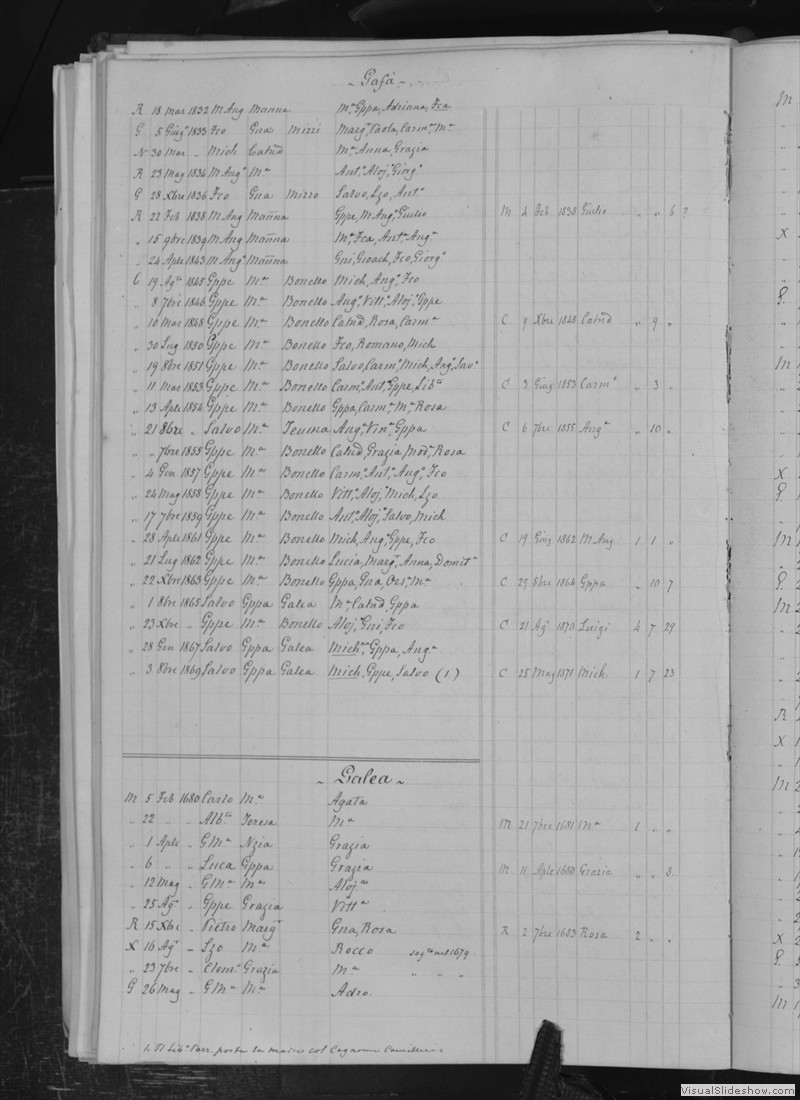 ~ Gafà ~
R 18 mar 1832 M Ang Manna Mª Gppa, Adriana, Fca
G 5 Giugº 1833 Fco Gna Mizzi Margª Paola, Carmª Mª
N 30 Mar „ Mich Catnd Mª Anna, Grazia
R 23 Mag 1834 M Angº Mª Antº Alojº Giorgº
G 28 Xbre 1836 Fco Gna Mizzo Salvo, Lzo, Antº
R 22 Feb 1838 M Ang Manna Gppe, M Angº Giulio M 4 1838 Giulio „ „ 6 ?
„ 15 9bre 1839 M Ang Manna Mª Fca, Antª Angª
„ 24 Aple 1843 M Angº Manna Gni, Gioach, Fco, Giorgº
C 19 Agº 1845 Gppe Mª Bonello Mich, Angº Fco
„ 8 7bre 1846 Gppe Mª Bonello Angª Vittª Alojª Gppe
„ 10 Mar 1848 Gppe Mª Bonello Catnd, Rosa, Carmª C 9 Xbre 1848 Catnd „ 9 „
„ 30 Lug 1850 Gppe Mª Bonello Fco, Romano, Mich
„ 19 8bre 1851 Gppe Mª Bonello Salvo, Carmº Mich, Angº Savº
„ 11 Mar 1853 Gppe Mª Bonello Carmº Antº Gppe, C 3 Giug 1853 Carmº „ 3 „
„ 13 Aple 1854 Gppe Mª Bonello Gppa, Carmª Mª Rosa
„ 21 8bre „ Salvo Mª Teuma Angª Vinª Gppa C 6 7bre 1855 Angª „ 10 „
„ „ 7bre 1855 Gppe Mª Bonello Catnd, Grazia, Rosa
„ 4 Gen 1857 Gppe Mª Bonello Carmº Antº Angº Fco
„ 24 Mag 1858 Gppe Mª Bonello Vittº Alojº Mich, Lzo
„ 17 7bre 1859 Gppe Mª Bonello Antº Alojº Salvo, Mich
„ 28 Aple 1861 Gppe Mª Bonello Mich, Angº Gppe, Fco C 19 Giug 1862 M Ang 1 1 „
„ 21 Lug 1862 Gppe Mª Bonello Lucia, Margª Anna, Domitª
„ 22 Xbre 1863 Gppe Mª Bonello Gppa, Gna, Orsª Mª C 29 8bre 1864 Gppa „ 10 7
„ 1 8bre 1865 Salvo Gppa Galea Mª Catnd, Gppa
„ 23 Xbre „ Gppe Mª Bonello Alojº Gni, Fco C 21 Agº 1870 Luigi 4 7 29
„ 28 Gen 1867 Salvo Gppa Galea Michª Gppa, Angª
„ 3 8bre 1869 Salvo Gppa Galea Mich, Gppe, Salvo (1) C 25 Mag 1871 Mich. 1 7 23
~ Galea ~
M 5 Feb 1680 Carlo Mª Agata
„ 22 „ „ Albº Teresa Mª M 21 7bre 1681 Mª 1 „ „
„ 1 Aple „ GMª Nzia Grazia
„ 6 „ „ Luca Gppa Grazia M 11 Aple 1680 Grazia „ „ 8.
„ 12 Mag „ GMª Mª Alojª
„ 25 Agº „ Gppe Grazia Vittª
R 15 Xbre „ Pietro Margª Gna, Rosa R 2 7bre 1683 Rosa 2 „ „
X 16 Agº „ Lzo Mª Rocco nel 1679
„ 23 7bre „ Clemº Grazia Mª „ „ „
G 26 Mag „ GMª Mª Adro.
1. Il Libº Parr. porta la madre col Cognome Camilleri
VisualSlideshow.com